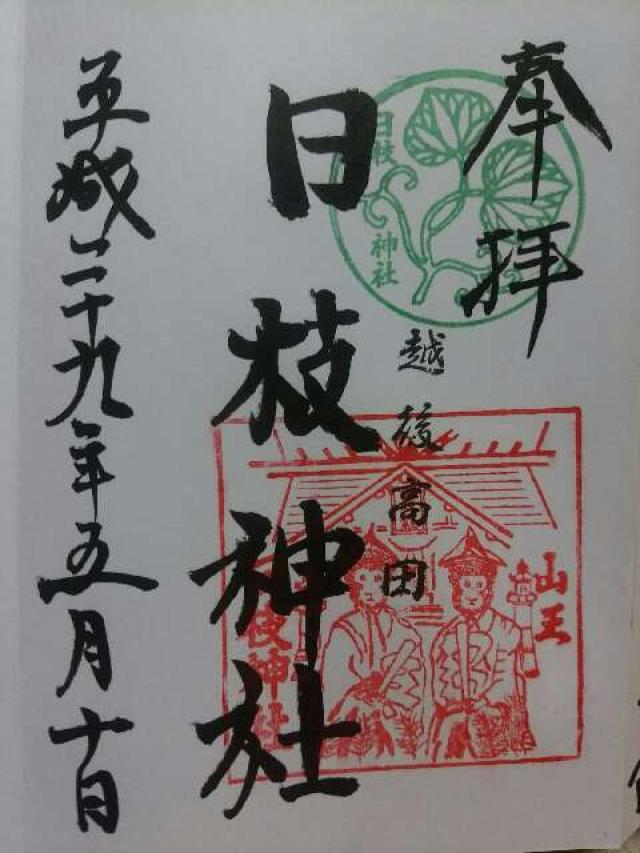 奉拝
越後高田
日枝神社
平成二十九年五月十日
日枝
神社
山王
日枝神社